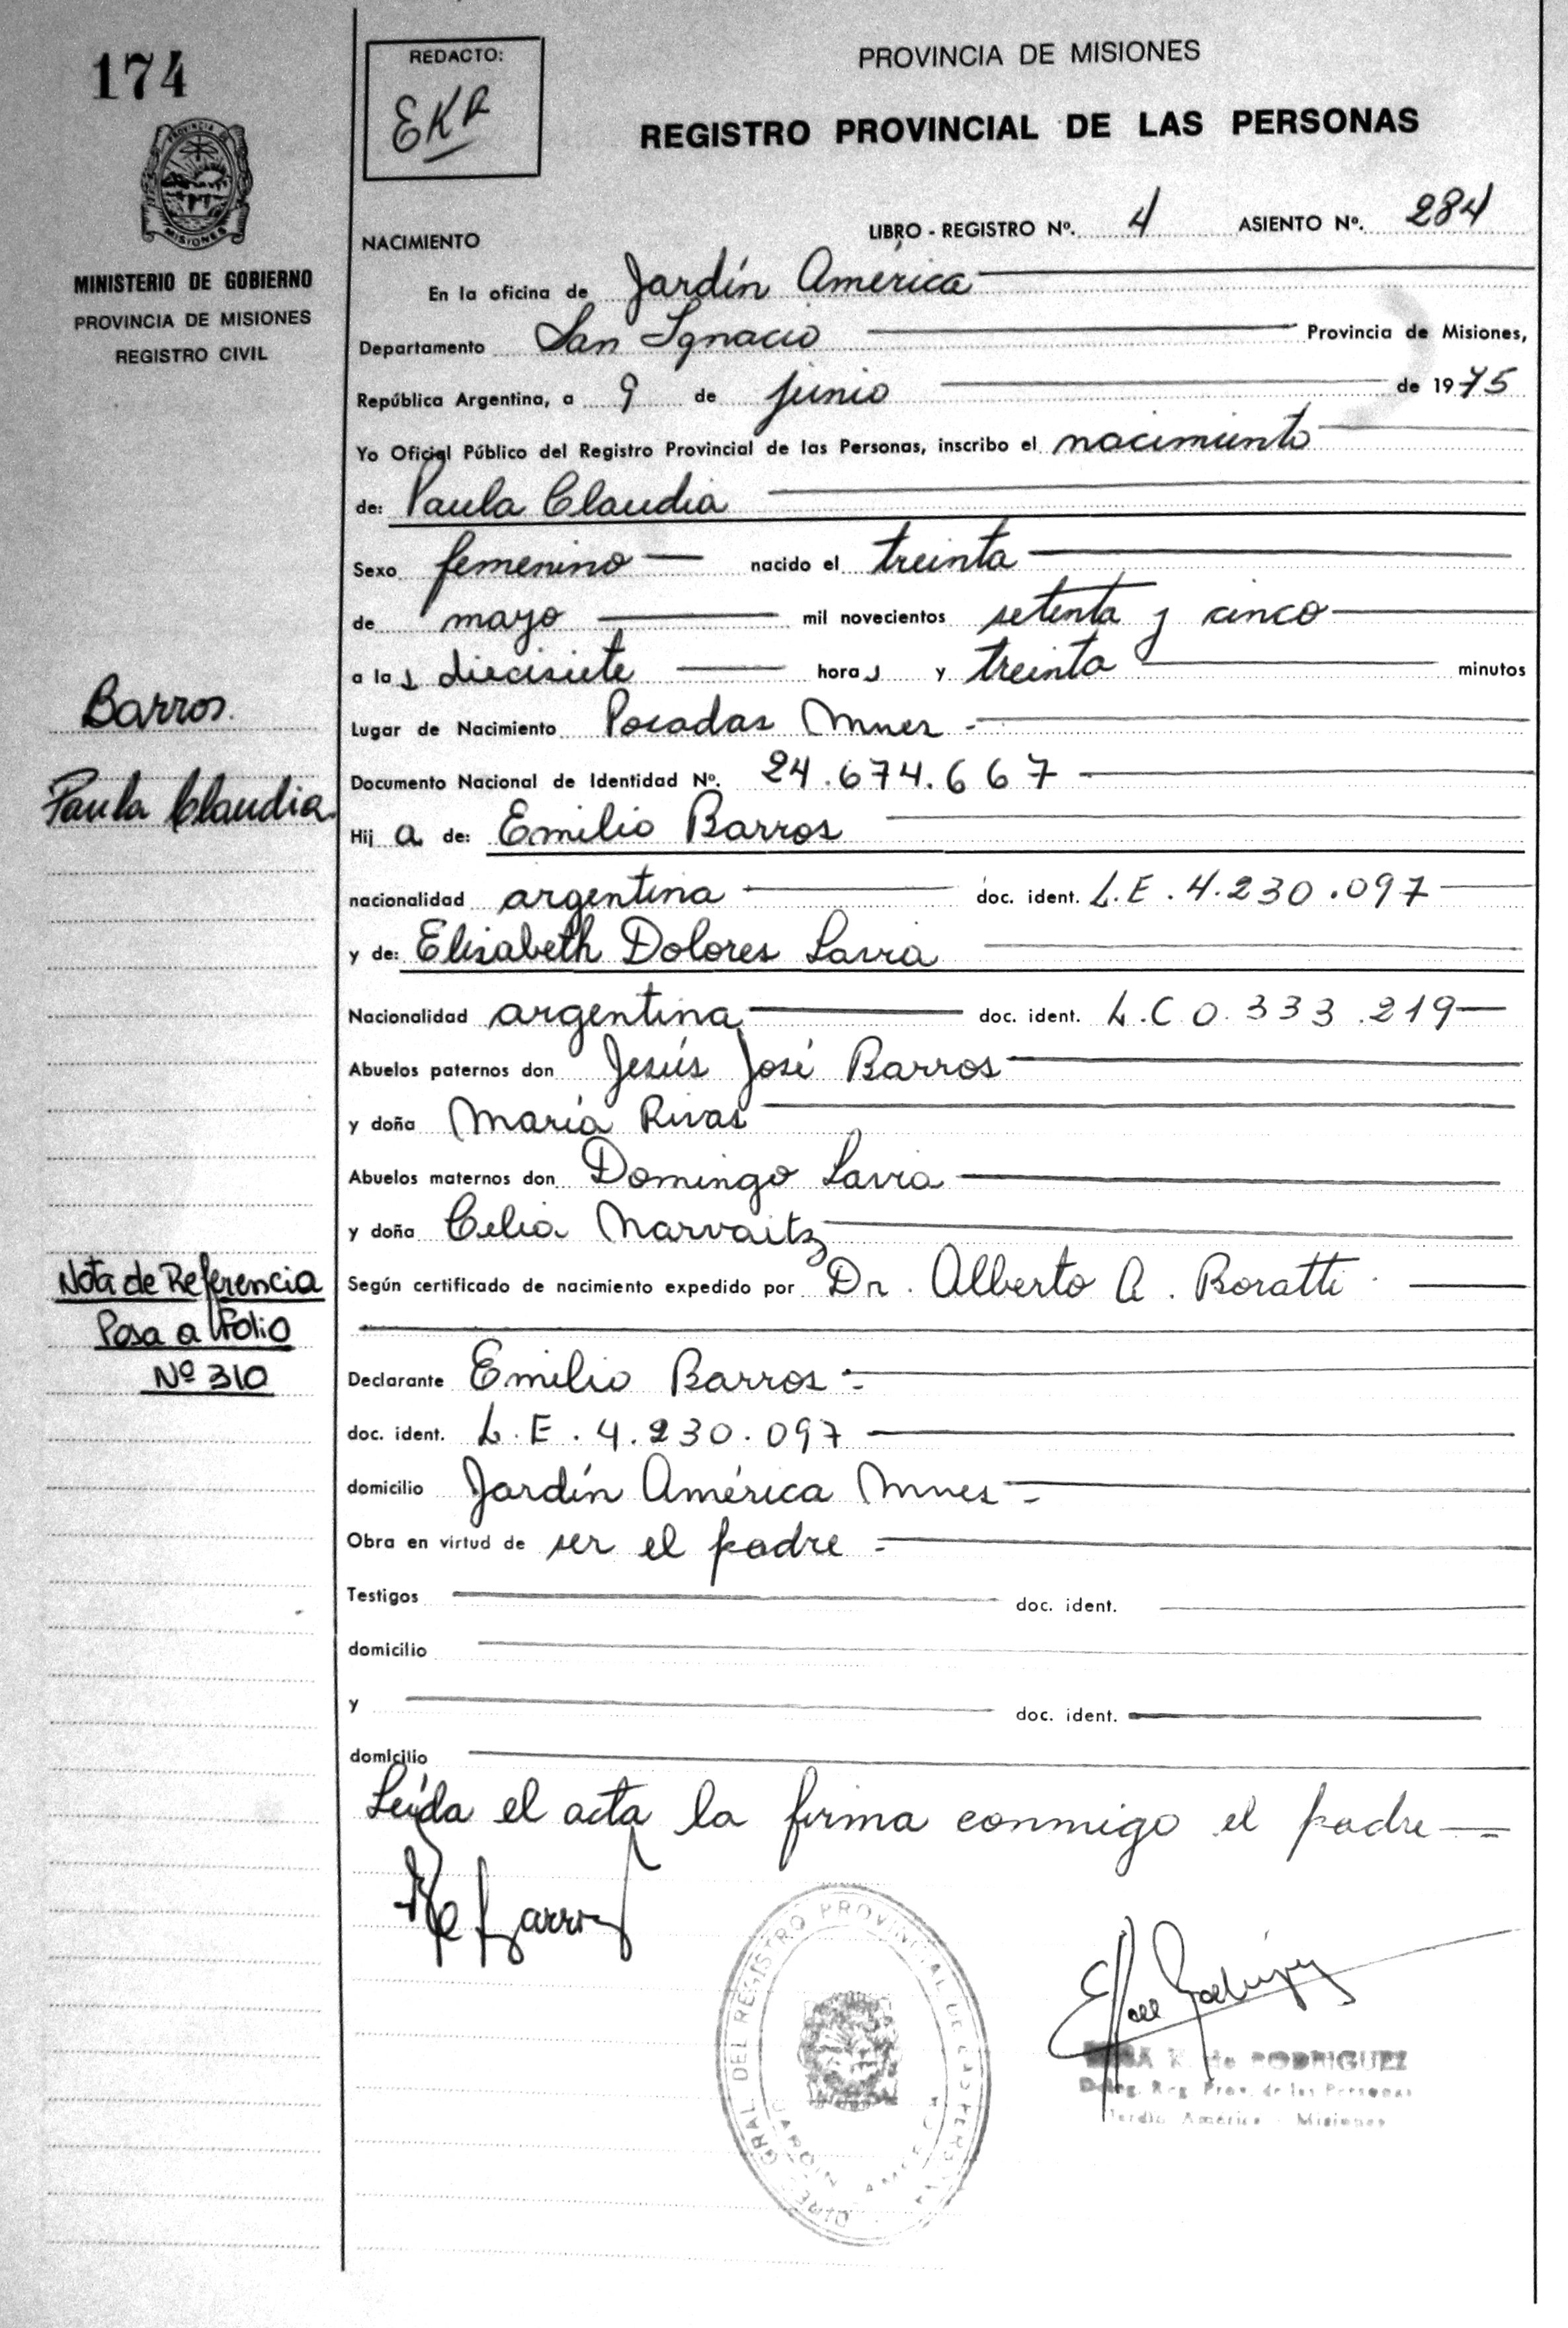 174
PROVINCIA DE
MISIONES
MINISTERIO DE GOBIERNO
PROVINCIA DE MISIONES
REGISTRO CIVIL
REDACTO:
EKR
PROVINCIA DE MISIONES
REGISTRO PROVINCIAL DE LAS PERSONAS
NACIMIENTO LIBRO - REGISTRO Nº. 4 ASIENTO Nº. 284
En la oficina de Jardín América
Departamento San Ignacio Provincia de Misiones,
República Argentina, a 9 de junio de 1975
Yo Oficial Público del Registro Provincial de las Personas, inscribo el nacimiento
de: Paula Claudia
Sexo femenino nacido el treinta
de mayo mil novecientos setenta y cinco
a las diecisiete horas y treinta minutos
Lugar de Nacimiento Posadas Mnes -
Documento Nacional de Identidad Nº. 24.674.667
Hija de: Emilio Barros
nacionalidad argentina doc. ident. L.E. 4.230.097
y de: Elisabeth Dolores Lavia
Nacionalidad argentina doc. ident. L.C 0.333.219
Abuelos paternos don Jesús José Barros
y doña María Rivas
Abuelos maternos don Domingo Lavia
y doña Celia Narvaitz
Según certificado de nacimiento expedido por Dr. Alberto A. Boratti
Declarante Emilio Barros
doc. ident. L.E. 4.230.097
domicilio Jardín América Mnes -
Obra en virtud de ser el padre -
Testigos doc. ident.
domicilio
y doc. ident.
domicilio
Leída el acta la firma conmigo el padre
Barros.
Paula Claudia
Nota de Referencia
Pasa a Folio
Nº 310
DIREC. GRAL. DEL REGISTRO PROVINCIAL DE LAS PERSONAS
K. de RODRIGUEZ
Deleg. Reg. Prov. de las Personas
Jardín América - Misiones